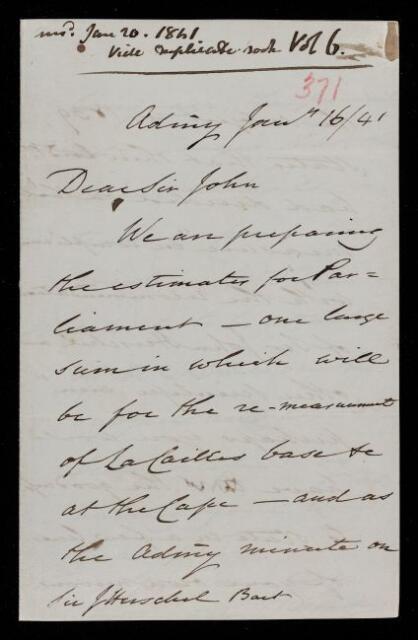 ansd. Jan 20. 1841
Vide duplicate book Vol 6.
371
Admy Jany 16/41
Dear Sir John
We are preparing
the estimates for Par=
liament – one large
sum in which will
be for the re-measurement
of La Cailles base &c
at the Cape – and as
the Admy minute on
Sir J Herschel Bart